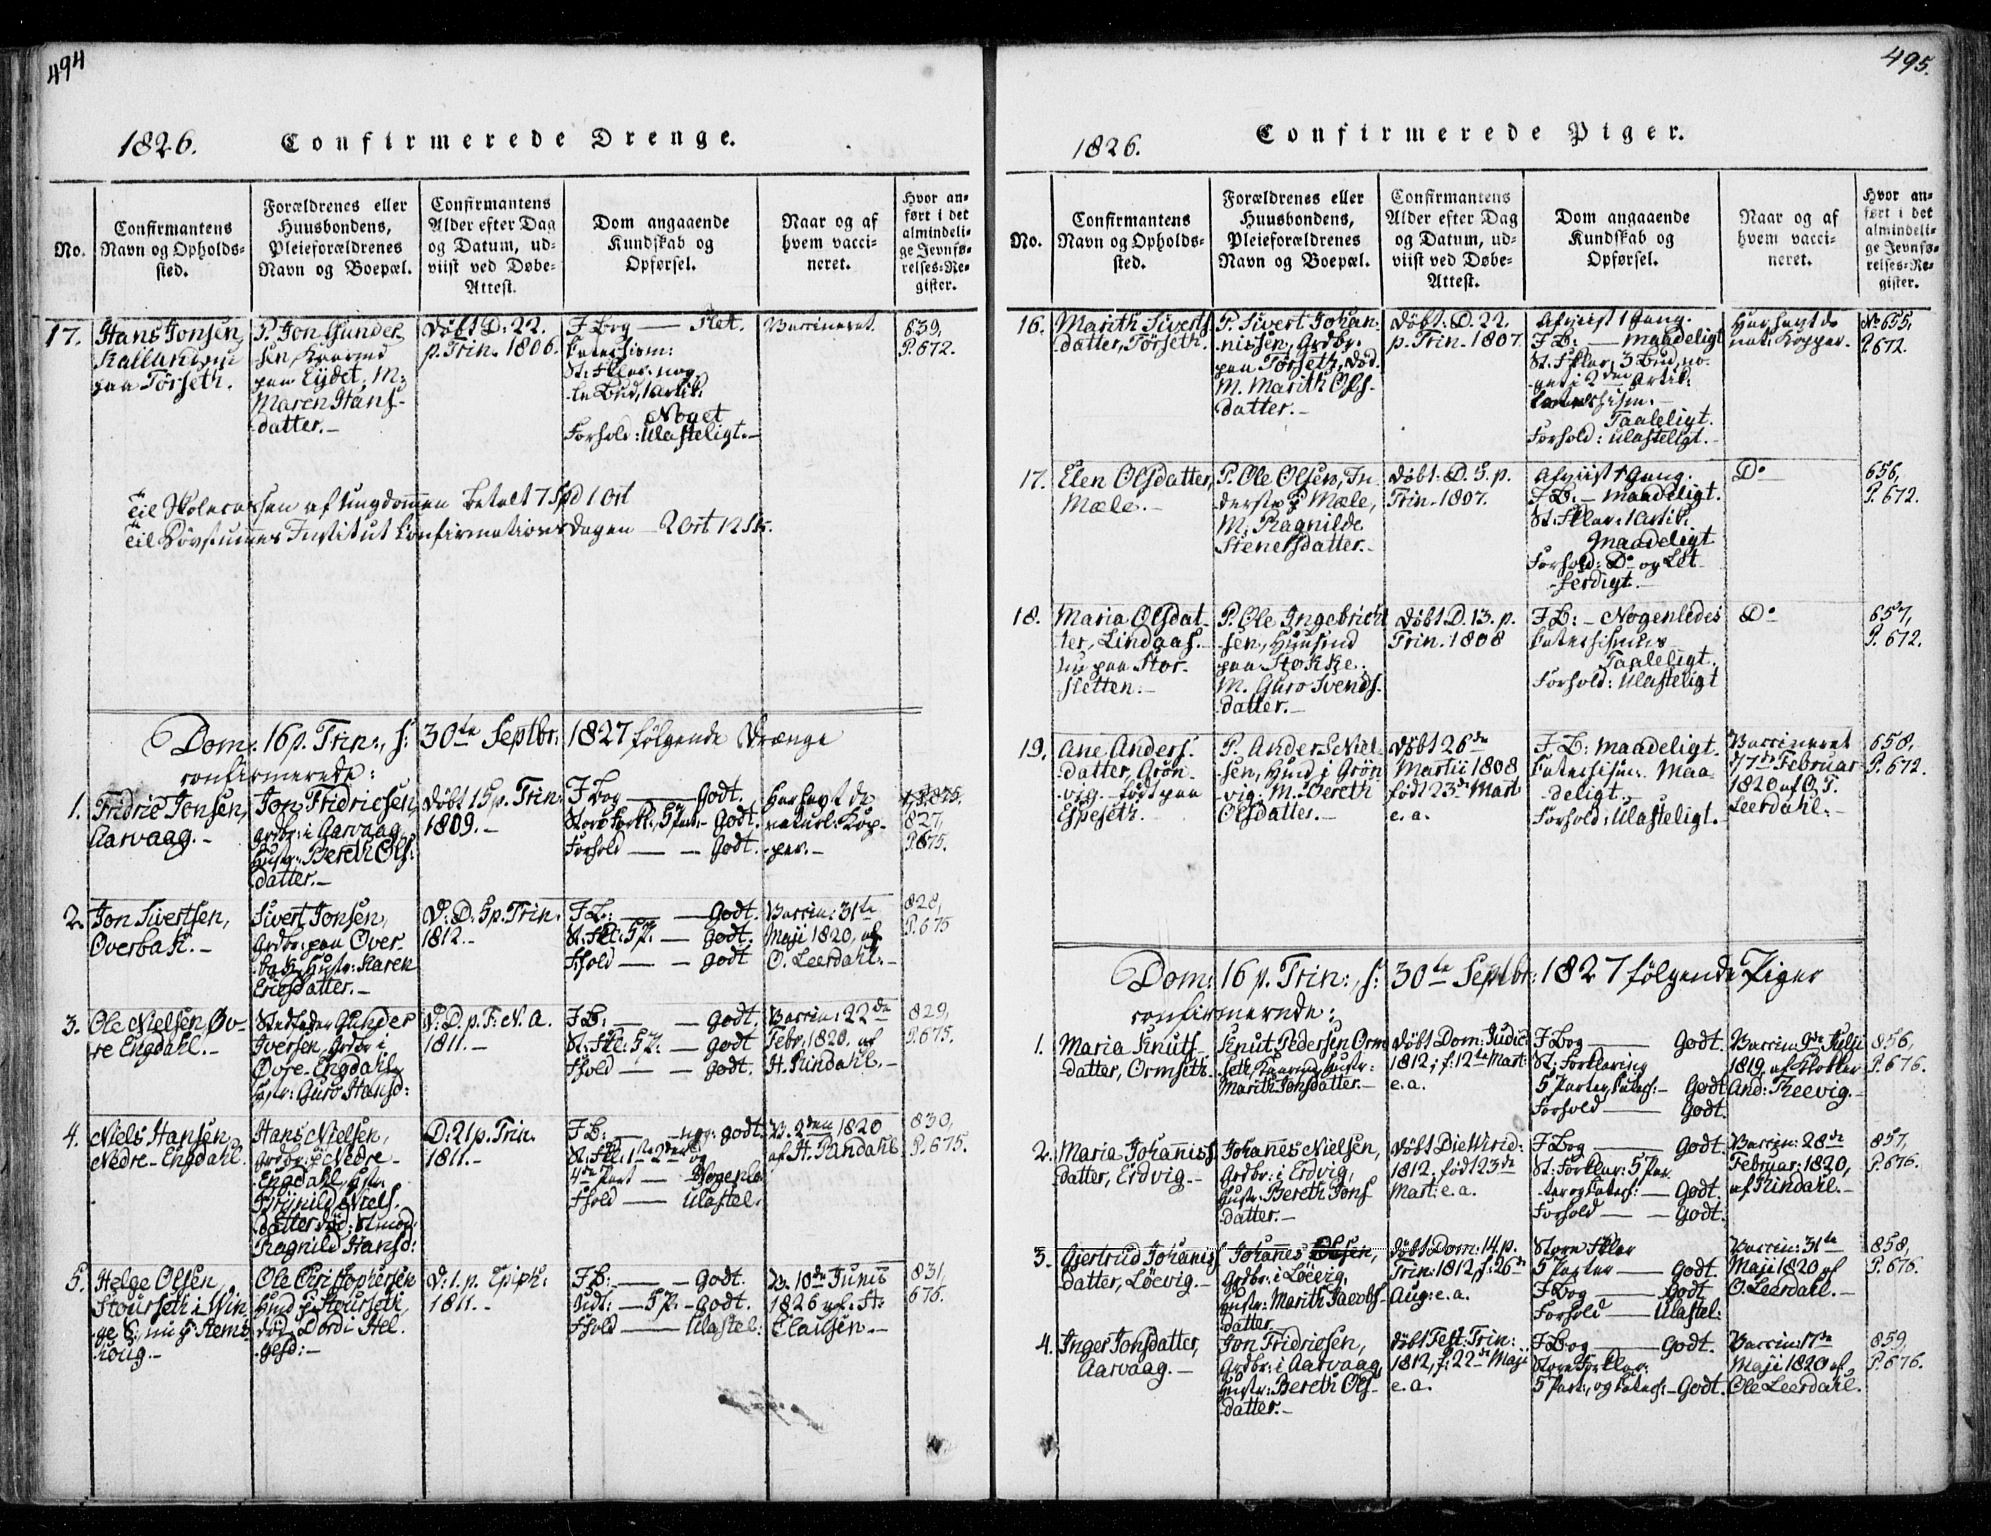 494
1826.
Confirmerede Drenge.
No.
Confirmantens
Navn og Opholds-
sted.
Forældrenes eller
Huusbondens,
Pleieforældrenes
Navn og Boepæl.
Confirmantens
Alder efter Dag
og Datum, ud-
viist ved Døbe-
Attest.
Dom angaaende
Kundskab og
Opførsel.
Naar og af
hvem vacci-
neret.
Hvor an-
ført i det
almindeli-
ge Jevnfø-
relses-Re-
gister.
17.
Hans Jonsen,
Kalland nu
paa Torseth.
P. Jon Gunder
sen, Kaarmd
paa Eydet, M:
Maren Hans-
datter.-
Døbt D: 22.
p. Trin. 1806.
F. Bog — slet.
Catechism:
St: Fklar: nog
le Bud, 1 Artik:
Noget
Forhold: Ulasteligt.-
Vaccineret.
639,
P. 672.
Til Skolecassen af Ungdommen betalt 7 Spd 1 ort
Til Døvstummes Institut Confirmations Dagen - 2 Ort 12 sk.
Dom: 16 p. Trin:, s: 30te Septbr: 1827 følgende Drænge
confirmerede:
1.
Fridric Jonsen,
Aarvaag.-
Jon Fridricsen,
Grdbr: i Aarvaag,
Hustr: Bereth Ols-
datter.-
Døbt 15 p. Trin:
1809.-
F. Bog — Godt.
Store Forkl:, 5 Part:- Godt.
Forhold — - Godt.
Har havt de
naturl: Kop-
per.-
827,
P. 675.
2.
Jon Sivertsen,
Overbak.-
Sivert Jonsen,
Grdbr: paa Over-
bak, Hustr: Karen
Ericsdatter.-
D: D. 5 p. Trin.
1812.-
F. B: — - Godt.
St: Fkl: 5 P. — Godt.
Fhold — - Godt
Vaccin: 31te
Maji 1820, af
O. Leerdahl.-
828,
P. 675
3.
Ole Nielsen, Øv-
re Engdahl.-
Stedfader Gunder
Iversen, Grdbr i
Øvre-Engdahl,
Hstr: Guro Hansd:
D: D. p. F: N. A.
1811.-
F. B: — - Godt.
St: Fkl: 5 P. - Godt
Fhold — - Godt.
Vaccin: 22de
Febr: 1820. af
H. Rindahl.-
829,
P. 675.
4.
Niels Hansen,
Nedre-Engdahl.
Hans Nielsen,
Grdbr: i Nedre-
Engdahl, Hstr:
Brynild Niels-
datter død: Stmod:
Ragnild Hansd:
D: 21 p. Trin.
1811.-
F. B: — nog: godt.
St: Fkl: 1ste 2den og
4de Part — Nogenl:
Fhold — Ulastel:
V. 2den 1820
af H. Rindahl
830,
P. 675.
5.
Helge Olsen,
Stourseth i Win
ge S:, nu p Stems-
houg.-
Ole Christophersen
Hmd p Stourseth,
død, Dordi Hel-
gesd:-
D: 1. p. Epiph:
1811.-
F. B: — - Godt.
Udt: — 5 P. - Godt.
Fhold — Ulastel:
V. 10de Junii
1826 af. St:
Clausen.-
831,
676.
495.
1826.
Confirmerede Piger.
No.
Confirmantens
Navn og Opholds-
sted.
Forældrenes eller
Huusbondens,
Pleieforældrenes
Navn og Boepæl.
Confirmantens
Alder efter Dag
og Datum, ud-
viist ved Døbe-
Attest.
Dom angaaende
Kundskab og
Opførsel.
Naar og af
hvem vacci-
neret.
Hvor an-
ført i det
almindeli-
ge Jevnfø-
relses-Re-
gister.
16.
Marith Siverts
datter, Torseth.
P. Sivert Johan-
nissen, Grdbr:
paa Torseth, død.
M. Marith Ols-
datter.-
Døbt: D. 22.
p. Trin. 1807.
Afviist 1 Gang.
F. B: — maadeligt
St: Fklar: 3 Bud, no-
get i 2den Artik:
Catechism.-
Taaleligt.
Forhold: Ulasteligt.-
Har havt de
nat: Kopper.
No 655,
P. 672.
17.
Elen Olsdatter,
Mæle.-
P. Ole Olsen, In-
derste p Mæle,
M. Ragnilde
Stenersdatter.-
Døbt: D. 5. p.
Trin. 1807.
Afviist 1 Gang.
F. B: - maadeligt.
St: Fklar: 1 Artik:
Maadeligt
Forhold: Do og Let-
ferdigt.-
Do
656,
P. 672.
18.
Maria Olsdat-
ter, Lindaas.
nu paa Stor-
sletten.-
P. Ole Ingebricht
sen, Huusmd
paa Stokke.
M. Guro Svends-
datter.-
Døbt D. 13. p.
Trin. 1808
F. B: - Nogenledes
Catechismus
Taaleligt.
Forhold: Ulasteligt
Do
657,
P. 672.
19.
Ane Anders-
datter, Grøn-
vig. - født paa
Espeseth.
P. Anders Niel-
sen, Hmd i Grøn
vig. M. Bereth
Olsdatter.-
Døbt 26de
Martii 1808
født 23de Mart
e. a.
F. B: maadeligt.
Catechism. Maa-
deligt.
Forhold: Ulasteligt.
Vaccineret
17de Februar
1820 af O. T.
Leerdahl.-
658,
P. 672.
Dom: 16 p. Trin:, s: 30te Septbr: 1827 følgende Piger
confirmerede:
1.
Maria Knuts-
datter, Ormseth.
Knut Pedersen Orm
seth, Kaarmd, Hustr:
Marith Jonsdatter.-
Døbt Dom: Judica
1812, f: 12te Mart:
e. a.
F. Bog — Godt.
St: Forklaring
5 Parter, Catech:- Godt
Forhold — Godt.
Vaccin: 9de Julii
1819, af Klokker
And: Reevig.-
856,
P. 676.
2.
Maria Johaniss-
datter, Erdvig.-
Johanes Nielsen,
Grdbr: i Erdvig,
Hustr: Bereth Jons
datter.-
Døbt Die Virid:
1812. født 23de
Mart: e. a.
F. Bog — Godt.
St: Forklar: 5 Par-
ter og Catech: — Godt.
Forhold — - Godt.
Vaccin: 28de
Februar: 1820,
af Rindahl.-
857,
P. 676.
3.
Gjertrud Johanis
datter, Löevig.-
Johanes Olsen,
Grdbr: i Löevig,
Hustr: Marith Jacobs-
datter.
Døbt Dom: 14. p.
Trin: 1812, f. 26de
Aug: e. a.
Store Fklar
5 Parter — Godt.
F. Bog — Godt
Forhold — Ulastel:
Vaccin: 31te
Maji 1820 af
O. Leerdahl.-
858,
P. 676.
4.
Inger Jonsdatter,
Aarvaag.-
Jon Fridricsen,
Grdbr: i Aarvaag,
Hustr: Bereth Ols-
datter.-
Døbt Fest: Trin:
1812, f: 22de Maji
e. a.
F. Bog — Godt.
Store Forklar:
5 Part:, og Catech: - Godt.
Vaccin: 17de
Maji 1820 af
Ole Leerdahl.
859,
P. 676.